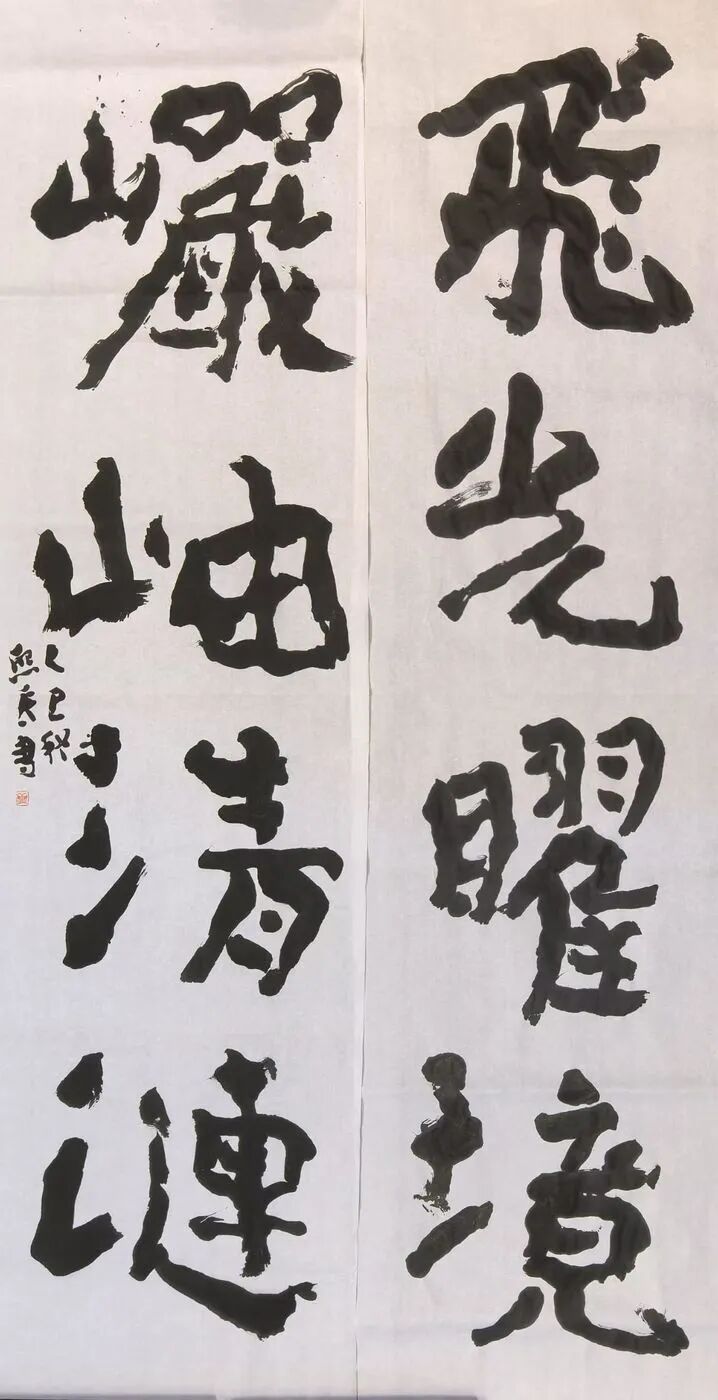 飛光曜境
巗岫清漣
乙巳秋
熙
書